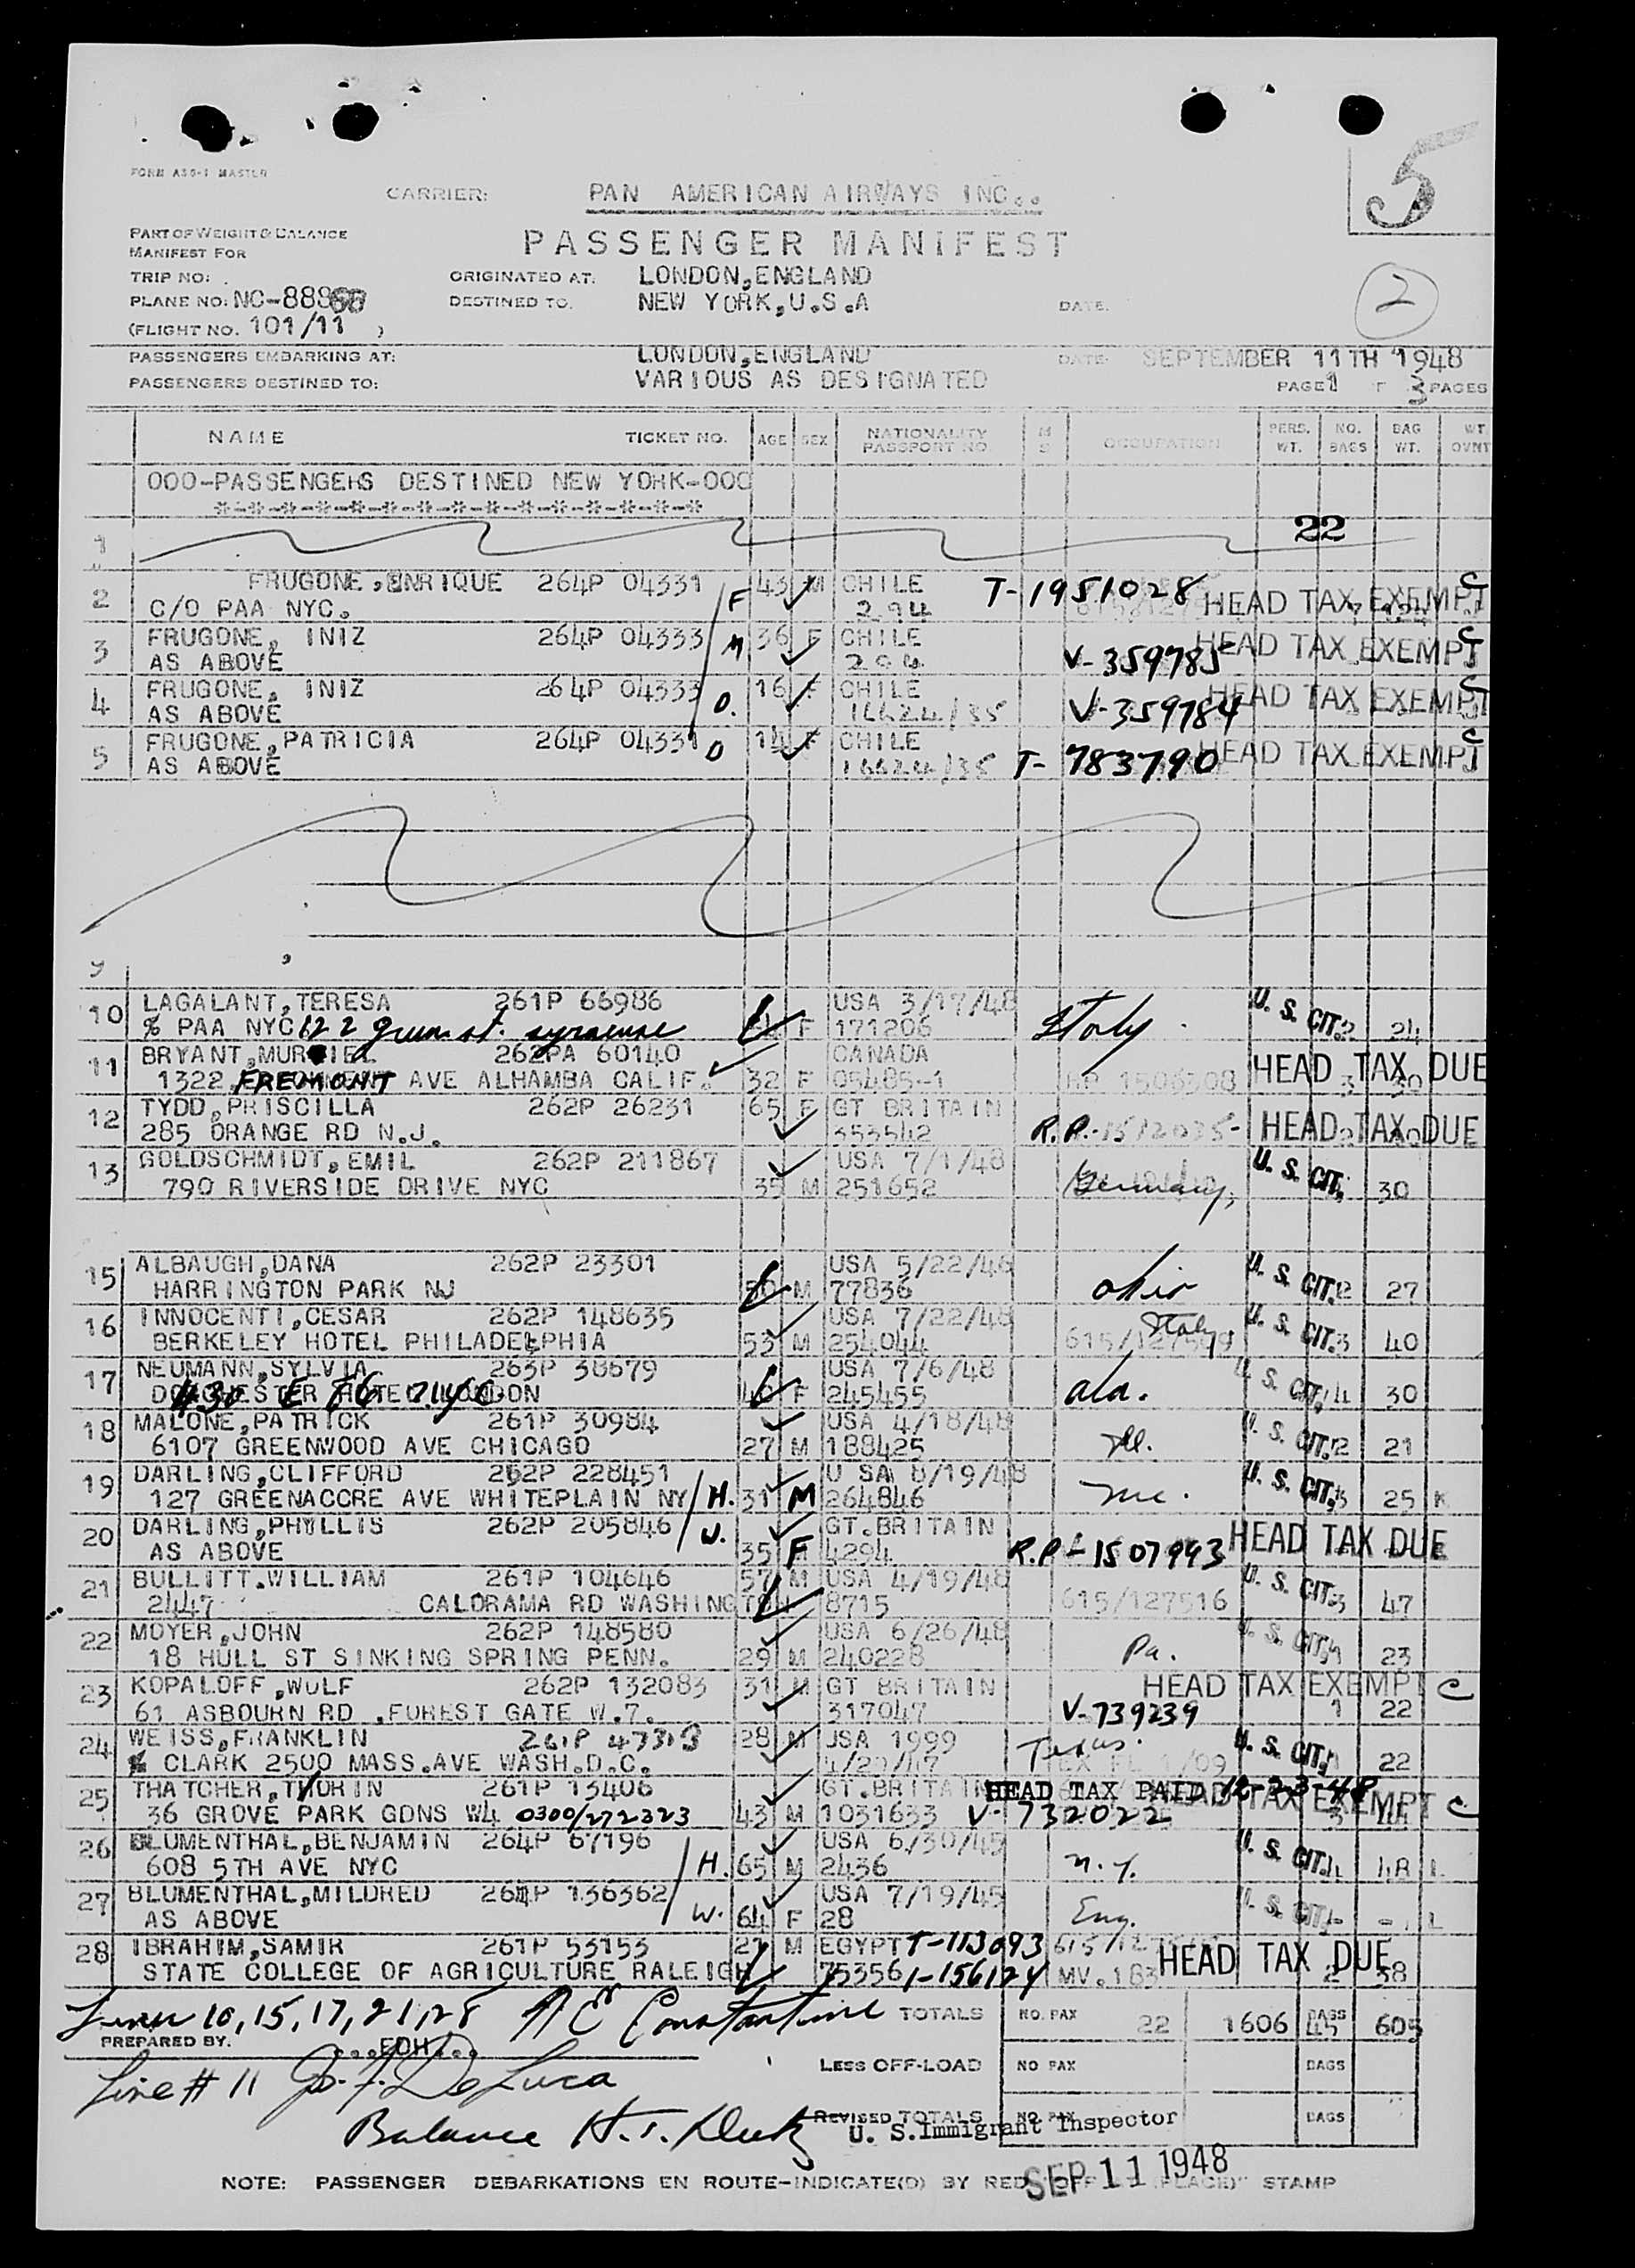 5
FORM A30-1 MASTER
CARRIER: PAN AMERICAN AIRWAYS INC..
PART OF WEIGHT & BALANCE
MANIFEST FOR
PASSENGER MANIFEST
TRIP NO: ORIGINATED AT: LONDON,ENGLAND
PLANE NO: NC-888 DESTINED TO. NEW YORK,U.S.A DATE. 2
(FLIGHT NO. 101/11 )
PASSENGERS EMBARKING AT: LONDON,ENGLAND DATE: SEPTEMBER 11TH 1948
PASSENGERS DESTINED TO: VARIOUS AS DESIGNATED PAGE 1 F 3 PAGES
NAME TICKET NO. AGE SEX NATIONALITY PASSPORT NO M S OCCUPATION PERS. WT. NO. BAGS BAG WT. WT OVNT
000-PASSENGERS DESTINED NEW YORK-000
*-*-*-*-*-*-*-*-*-*-*-*-*-*-*
1 22
2 FRUGONE,ENRIQUE 264P 04331 F 43 M CHILE T-1951028 HEAD TAX EXEMPT C
C/O PAA NYC. 294
3 FRUGONE, INIZ 264P 04333 M 36 F CHILE HEAD TAX EXEMPT C
AS ABOVE 294 V-359785
4 FRUGONE, INIZ 264P 04333 D. 16 F CHILE HEAD TAX EXEMPT C
AS ABOVE 16624/35 V-359784
5 FRUGONE,PATRICIA 264P 04331 D 14 F CHILE HEAD TAX EXEMPT C
AS ABOVE 16624/35 T-783790
9
10 LAGALANT,TERESA 261P 66986 USA 3/17/48 Italy U. S. CIT. 2 24
% PAA NYC 122 Green st. syracuse F 171206
11 BRYANT,MURIEL 262PA 60140 CANADA HEAD TAX DUE
1322 FREMONT AVE ALHAMBA CALIF. 32 F 05485-1 RP 1506508 3 30
12 TYDD,PRISCILLA 262P 26231 65 F GT BRITAIN HEAD TAX DUE
285 ORANGE RD N.J. 353542 R.P.-1512035-
13 GOLDSCHMIDT,EMIL 262P 211867 USA 7/1/48 U. S. CIT.
790 RIVERSIDE DRIVE NYC 35 M 251652 Germany, 30
15 ALBAUGH,DANA 262P 23301 USA 5/22/48 U. S. CIT.
HARRINGTON PARK NJ 50 M 77836 ohio 2 27
16 INNOCENTI,CESAR 262P 148635 USA 7/22/48 Italy U. S. CIT.
BERKELEY HOTEL PHILADELPHIA 53 M 254044 615/127599 3 40
17 NEUMANN,SYLVIA 263P 38679 USA 7/6/48 U. S. CIT.
DORCHESTER HOTEL LONDON 430 E 86 NYC F 245455 ala. 4 30
18 MALONE,PATRICK 261P 30984 USA 4/18/48 U. S. CIT.
6107 GREENWOOD AVE CHICAGO 27 M 188425 Ill. 2 21
19 DARLING,CLIFFORD 262P 228451 U SA 8/19/48 U. S. CIT.
127 GREENACCRE AVE WHITEPLAIN NY H. 31 M 264846 me. 3 25 K
20 DARLING,PHYLLIS 262P 205846 W. GT.BRITAIN HEAD TAX DUE
AS ABOVE 35 F 4294 R.P-1507993
21 BULLITT.WILLIAM 261P 104646 57 M USA 4/19/48 U. S. CIT.
2447 CALORAMA RD WASHINGTON 8715 615/127516 3 47
22 MOYER,JOHN 262P 148580 USA 6/26/48 U. S. CIT.
18 HULL ST SINKING SPRING PENN. 29 M 240228 Pa. 23
23 KOPALOFF,WULF 262P 132083 31 M GT BRITAIN HEAD TAX EXEMPT C
61 ASBOURN RD .FOREST GATE W.7. 317047 V-739239 1 22
24 WEISS,FRANKLIN 261P 47313 28 M USA 1999 Texas. U. S. CIT.
% CLARK 2500 MASS.AVE WASH.D.C. 4/29/47 22
25 THATCHER,THORIN 261P 13406 GT.BRITAIN HEAD TAX PAID 12-23-48 HEAD TAX EXEMPT C
36 GROVE PARK GDNS W4 0300/272323 43 M 1031633 V-732022 3
26 BLUMENTHAL,BENJAMIN 264P 67196 USA 6/30/45 U. S. CIT.
608 5TH AVE NYC H. 65 M 2436 n.y. 4 48 L
27 BLUMENTHAL,MILDRED 264P 136362 USA 7/19/45 U. S. CIT.
AS ABOVE W. 64 F 28 Eng. - - L
28 IBRAHIM,SAMIR 261P 53153 21 M EGYPT T-113093 HEAD TAX DUE
STATE COLLEGE OF AGRICULTURE RALEIGH 75356 1-156124 MV.183 2 38
Lines 10,15,17,21,28 A E Constantine TOTALS NO. PAX 22 1606 BAGS 45 605
PREPARED BY. ...EDH...
LESS OFF-LOAD NO PAX BAGS
Line # 11 Jo. F. De Luca
REVISED TOTALS NO PAX BAGS
Balance H.T. U. S. Immigrant Inspector
SEP 11 1948
NOTE: PASSENGER DEBARKATIONS EN ROUTE-INDICATE(D) BY RED "OFF PLACE(D)" STAMP